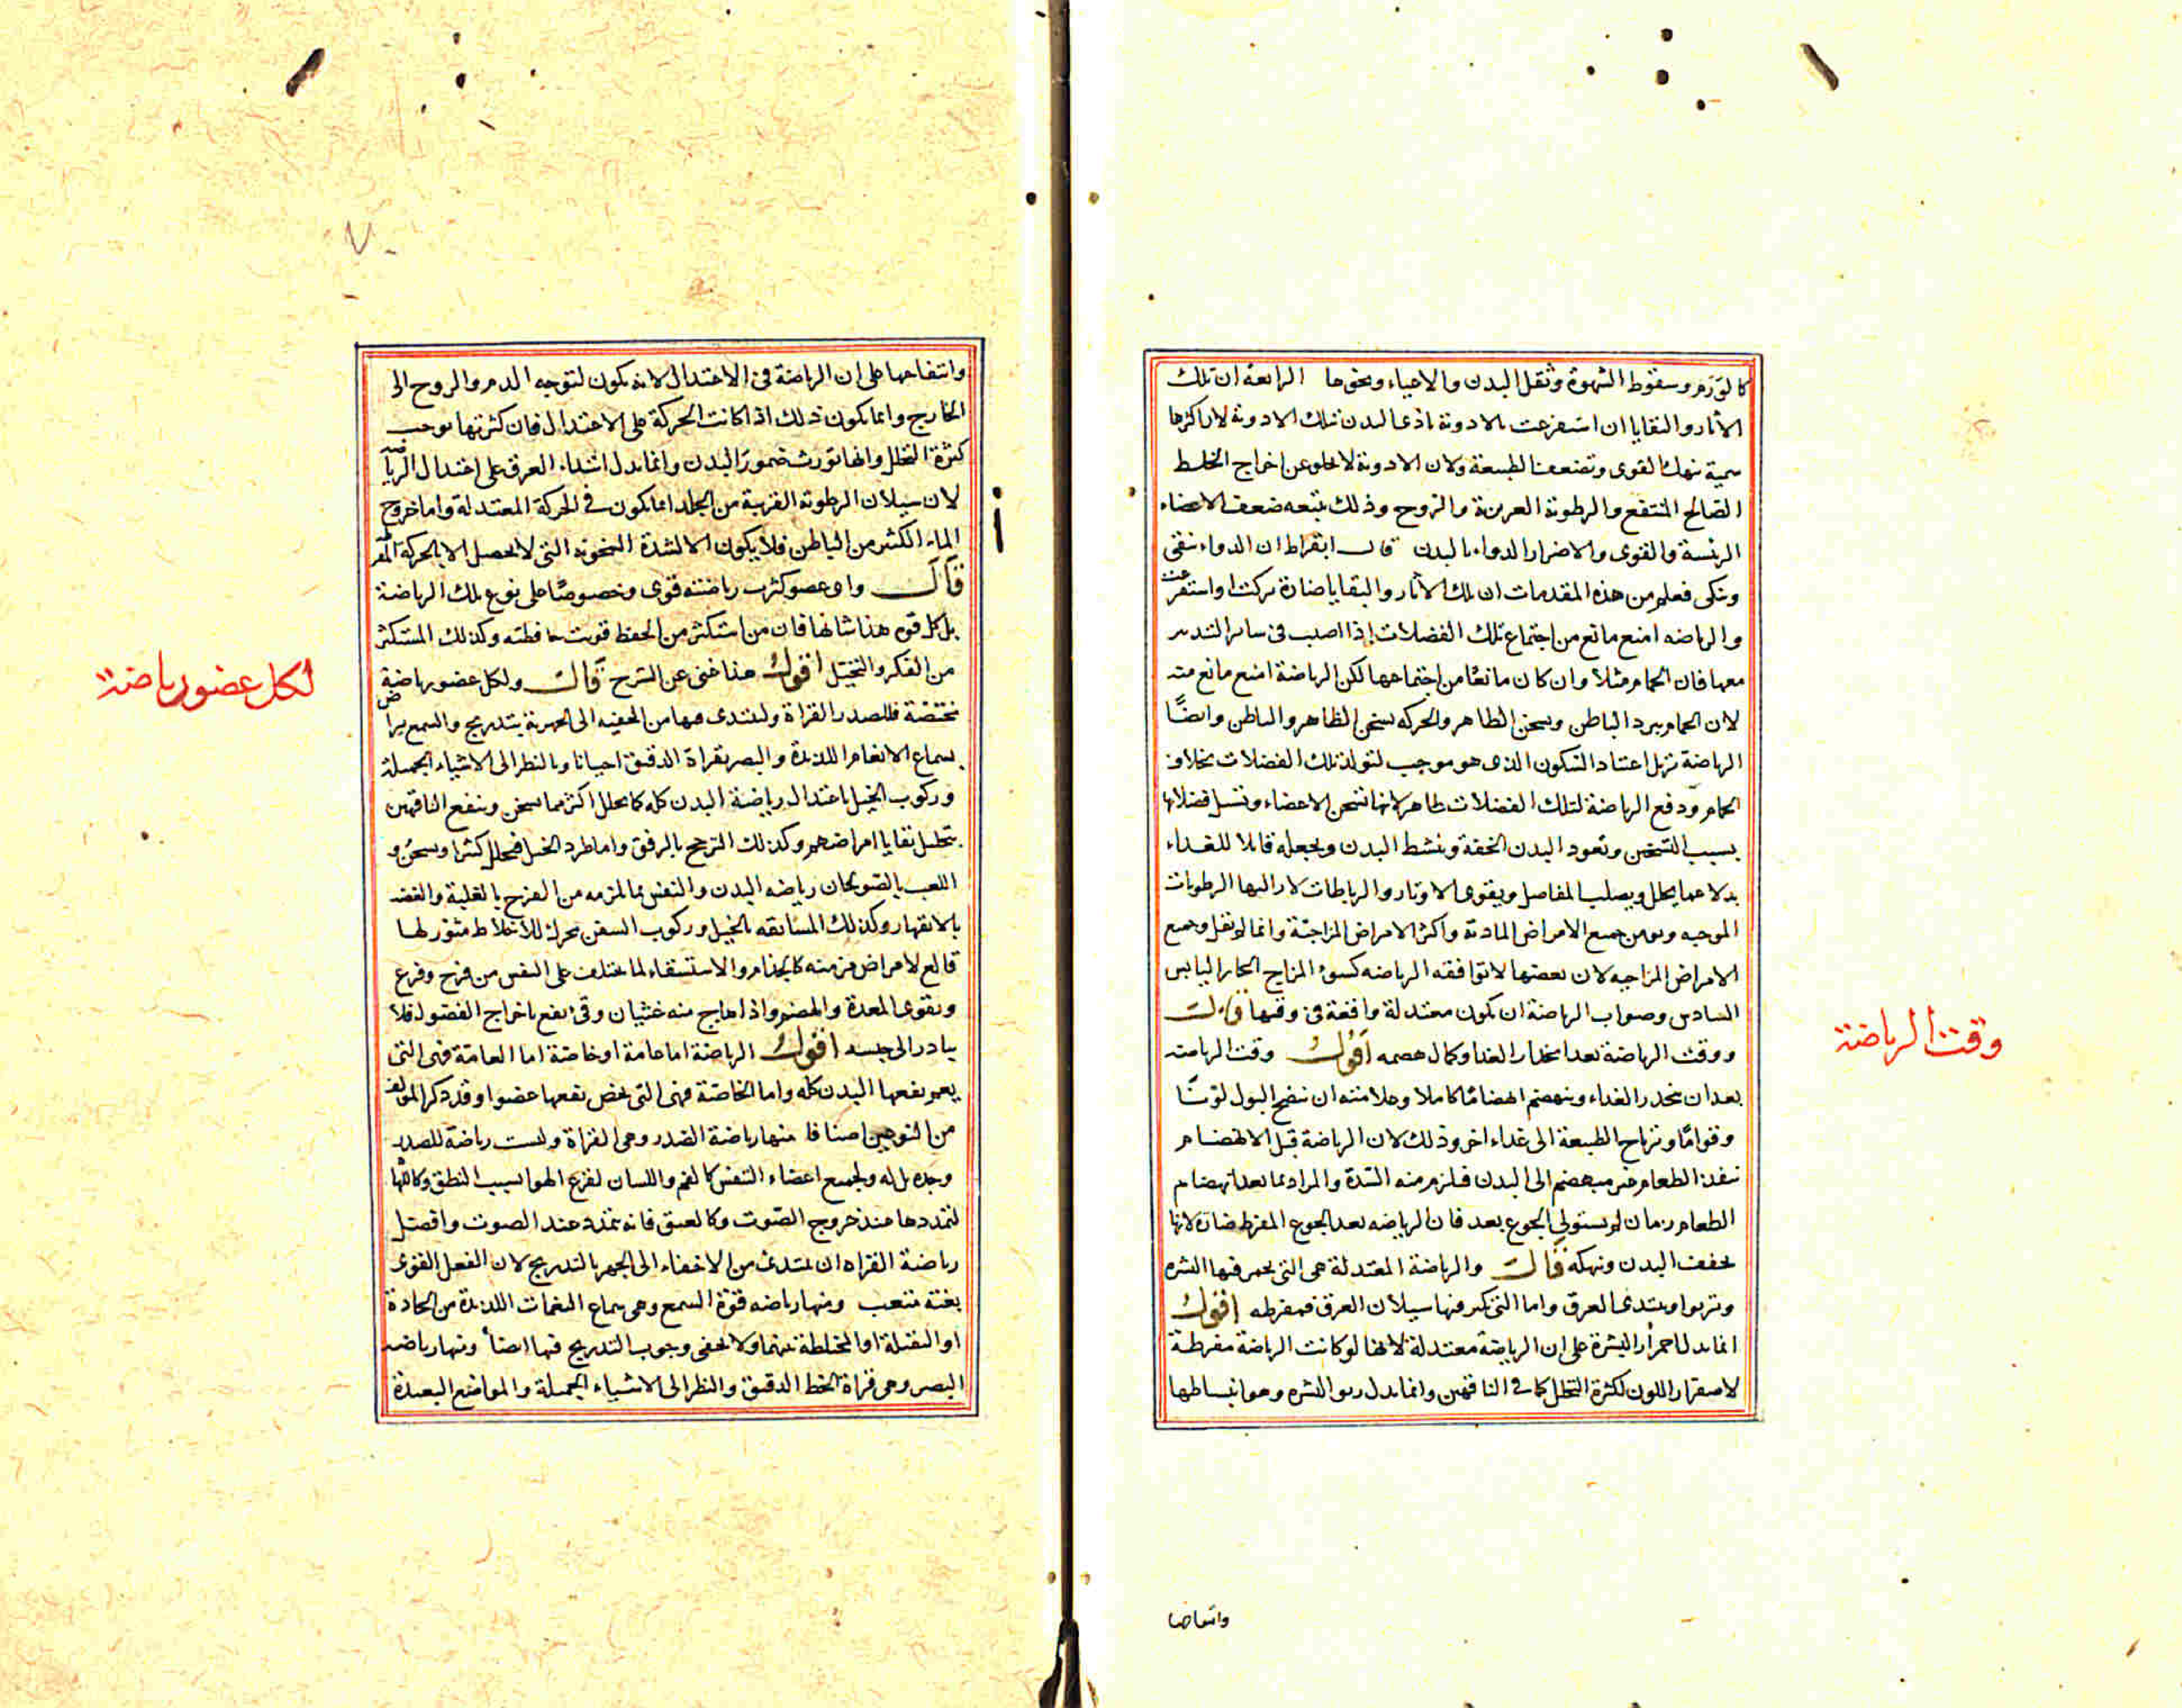 كالتورم وسقوط الشهوة وثقل البدن والاحياء ونحوها الرابعة ان تلك
الآثار والبقايا ان استفرغت بالادوية تاذى البدن بتلك الادوية لان اكثرها
سمية تنهك القوى وتضعف الطبيعة ولان الادوية لا تخلو عن اخراج الخلط
الصالح المنتفع والرطوبة الغريزية والروح وذلك يتبعه ضعف الاعضاء
الرئيسة والقوى والاضرار الدواء بالبدن قال ابقراط ان الدواء ينقى
وينكى فعلم من هذه المقدمات ان تلك الآثار والبقايا ضارة تركت او استفرغت
والرياضه امنع مانع من اجتماع تلك الفضلات اذا اصيب فى سائر التدبير
معها فان الحمام مثلا وان كان مانعا من اجتماعها لكن الرياضة امنع مانع منه
لان الحمام يبرد الباطن ويسخن الظاهر والحركه تسخن الظاهر والباطن وايضًا
الرياضة تزيل اعتياد السكون الذى هو موجب لتولد تلك الفضلات بخلاف
الحمام ودفع الرياضة لتلك الفضلات ظاهر لانها تسخن الاعضاء وتسيل فضلاتها
بسبب التسخين وتعود البدن الخفة وتنشط البدن وتجعله قابلا للغذاء
بدلا عما يحلل ويصلب المفاصل ويقوى الاوتار والرباطات الرطوبات
الموجبه ويومن جميع الامراض المادية واكثر الامراض المزاجيّة وانما لم نقل وجميع
الامراض المزاجيه لان بعضها لا توافقه الرياضه كسوء المزاج الحار اليابس
السادس وصواب الرياضة ان تكون معتدلة واقعة فى وقتها قال
ووقت الرياضة بعد انحدار الغذا وكمال هضمه اقول وقت الرياضة
بعد ان ينحدر الغذاء وينهضم انهضامًا كاملا وعلامته ان ينضج البول لونًا
وقوامًا وترتاح الطبيعة الى غذاء اخر وذلك لان الرياضة قبل الانهضام
تنفذ الطعام غير منهضم الى البدن فيلزم منه السّدة والمراد بما بعد انهضام
الطعام زمان لم يستولى الجوع بعد فان الرياضه بعد الجوع المفرط ضارة لانها
تجفف البدن وتنهكه قال والرياضة المعتدلة هى التى يحمر فيها البشره
وتربوا ويبتدى العرق واما التى يكثر فيها سيلان العرق فمفرطه اقول
انما يدل احمرار البشرة على ان الرياضة معتدلة لانها لو كانت الرياضة مفرطة
لاصفرار اللون لكثرة التحلل كما فى الناقهين وانما يدل ربو البشره وهو انبساطها
وانتفاخها
وقت الرياضة
وانتفاخها على ان الرياضة فى الاعتدال لانه يكون لتوجه الدم والروح الى
الخارج وانما يكون ذلك اذا كانت الحركة على الاعتدال فان كثرتها توجب
كثرة التحلل وانها تورث ضمور البدن وانما يدل ابتداء العرق على اعتدال الرياضة
لان سيلان الرطوبة القريبة من الجلد انما يكون فى الحركة المعتدلة واما خروج
الماء الكثير من الباطن فلا يكون الا لشدة السخونة التى لا تحصل الا بالحركة
قال واى عضو كثرت رياضته قوى وخصوصًا على نوع تلك الرياضة
بل كل قوه هذا شانها فان من استكثر من الحفظ قويت حافظته وكذلك المستكثر
من الفكر والتخيّل اقول هذا غنى عن الشرح قال ولكل عضو رياضة
مختصّة فللصدر القراة وليبتدى فيها من الخفيه الى الجهرية بتدريج والسمع يراض
بسماع الانغام اللذيذة والبصر بقراة الدقيق احيانا وبالنظر الى الاشياء الجميلة
وركوب الخيل باعتدال رياضة البدن كله كما يحلل اكثر مما يسخن وينفع الناقهين
بتحليل بقايا امراضهم وكذلك الترجح بالرفق واما طرد الخيل فيحلل كثيرا ويسخن و
اللعب بالصولجان رياضه البدن والنفس بما لمزمه من الفرح بالغلبة والغضب
بالانقهار وكذلك المسابقه بالخيل وركوب السفن محرك للاخلاط مثوّر لها
قالع لامراض مزمنه كالجذام والاستسقاء لما يختلف على النفس من فرح وفزع
وتقوى المعدة والهضم واذا هاج منه غثيان وقى نفع باخراج الفضول فلا
يبادر الى حبسه اقول الرياضة اما عامة او خاصّة اما العامّة فهى التى
يعم نفعها البدن كله واما الخاصّة فهى التى يخص نفعها عضوا وقد ذكر المولف
من النوعين اصنافا منها رياضة الصدر وهى القراة وليست رياضة للصدر
وحده بل له ولجميع اعضاء التنفس كالفم واللسان لقرع الهوا بسبب النطق وكاللهاة
لتمددها عند خروج الصّوت وكالعنق فانه يتمدد عند الصوت وافضل
رياضة القراه ان يبتدى من الاخفاء الى الجهر بالتدريج لان الفعل القوى
بغتة متعب ومنها رياضه قوّة السمع وهى سماع النغمات اللذيذة من الحادة
او الثقيلة او المختلطة بينهما ولا يخفى وجوب التدريج فيها ايضًا ومنها رياضه
البصر وهى قراة الخط الدقيق والنظر الى الاشياء الجميلة والمواضع البعيدة
لكل عضو رياضة